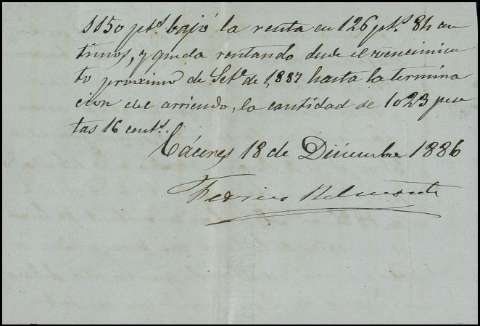 1150 ptˢ. bajó la renta en 126 ptˢ. 84 cen
timos, y queda rentando desde el vencimien
to proximo de Setᵉ. de 1,887 hasta la termina
cion del arriendo, la cantidad de 1023 pese
tas 16 centˢ.
Cáceres 18 de Diciembre 1886
Federico Belmonte